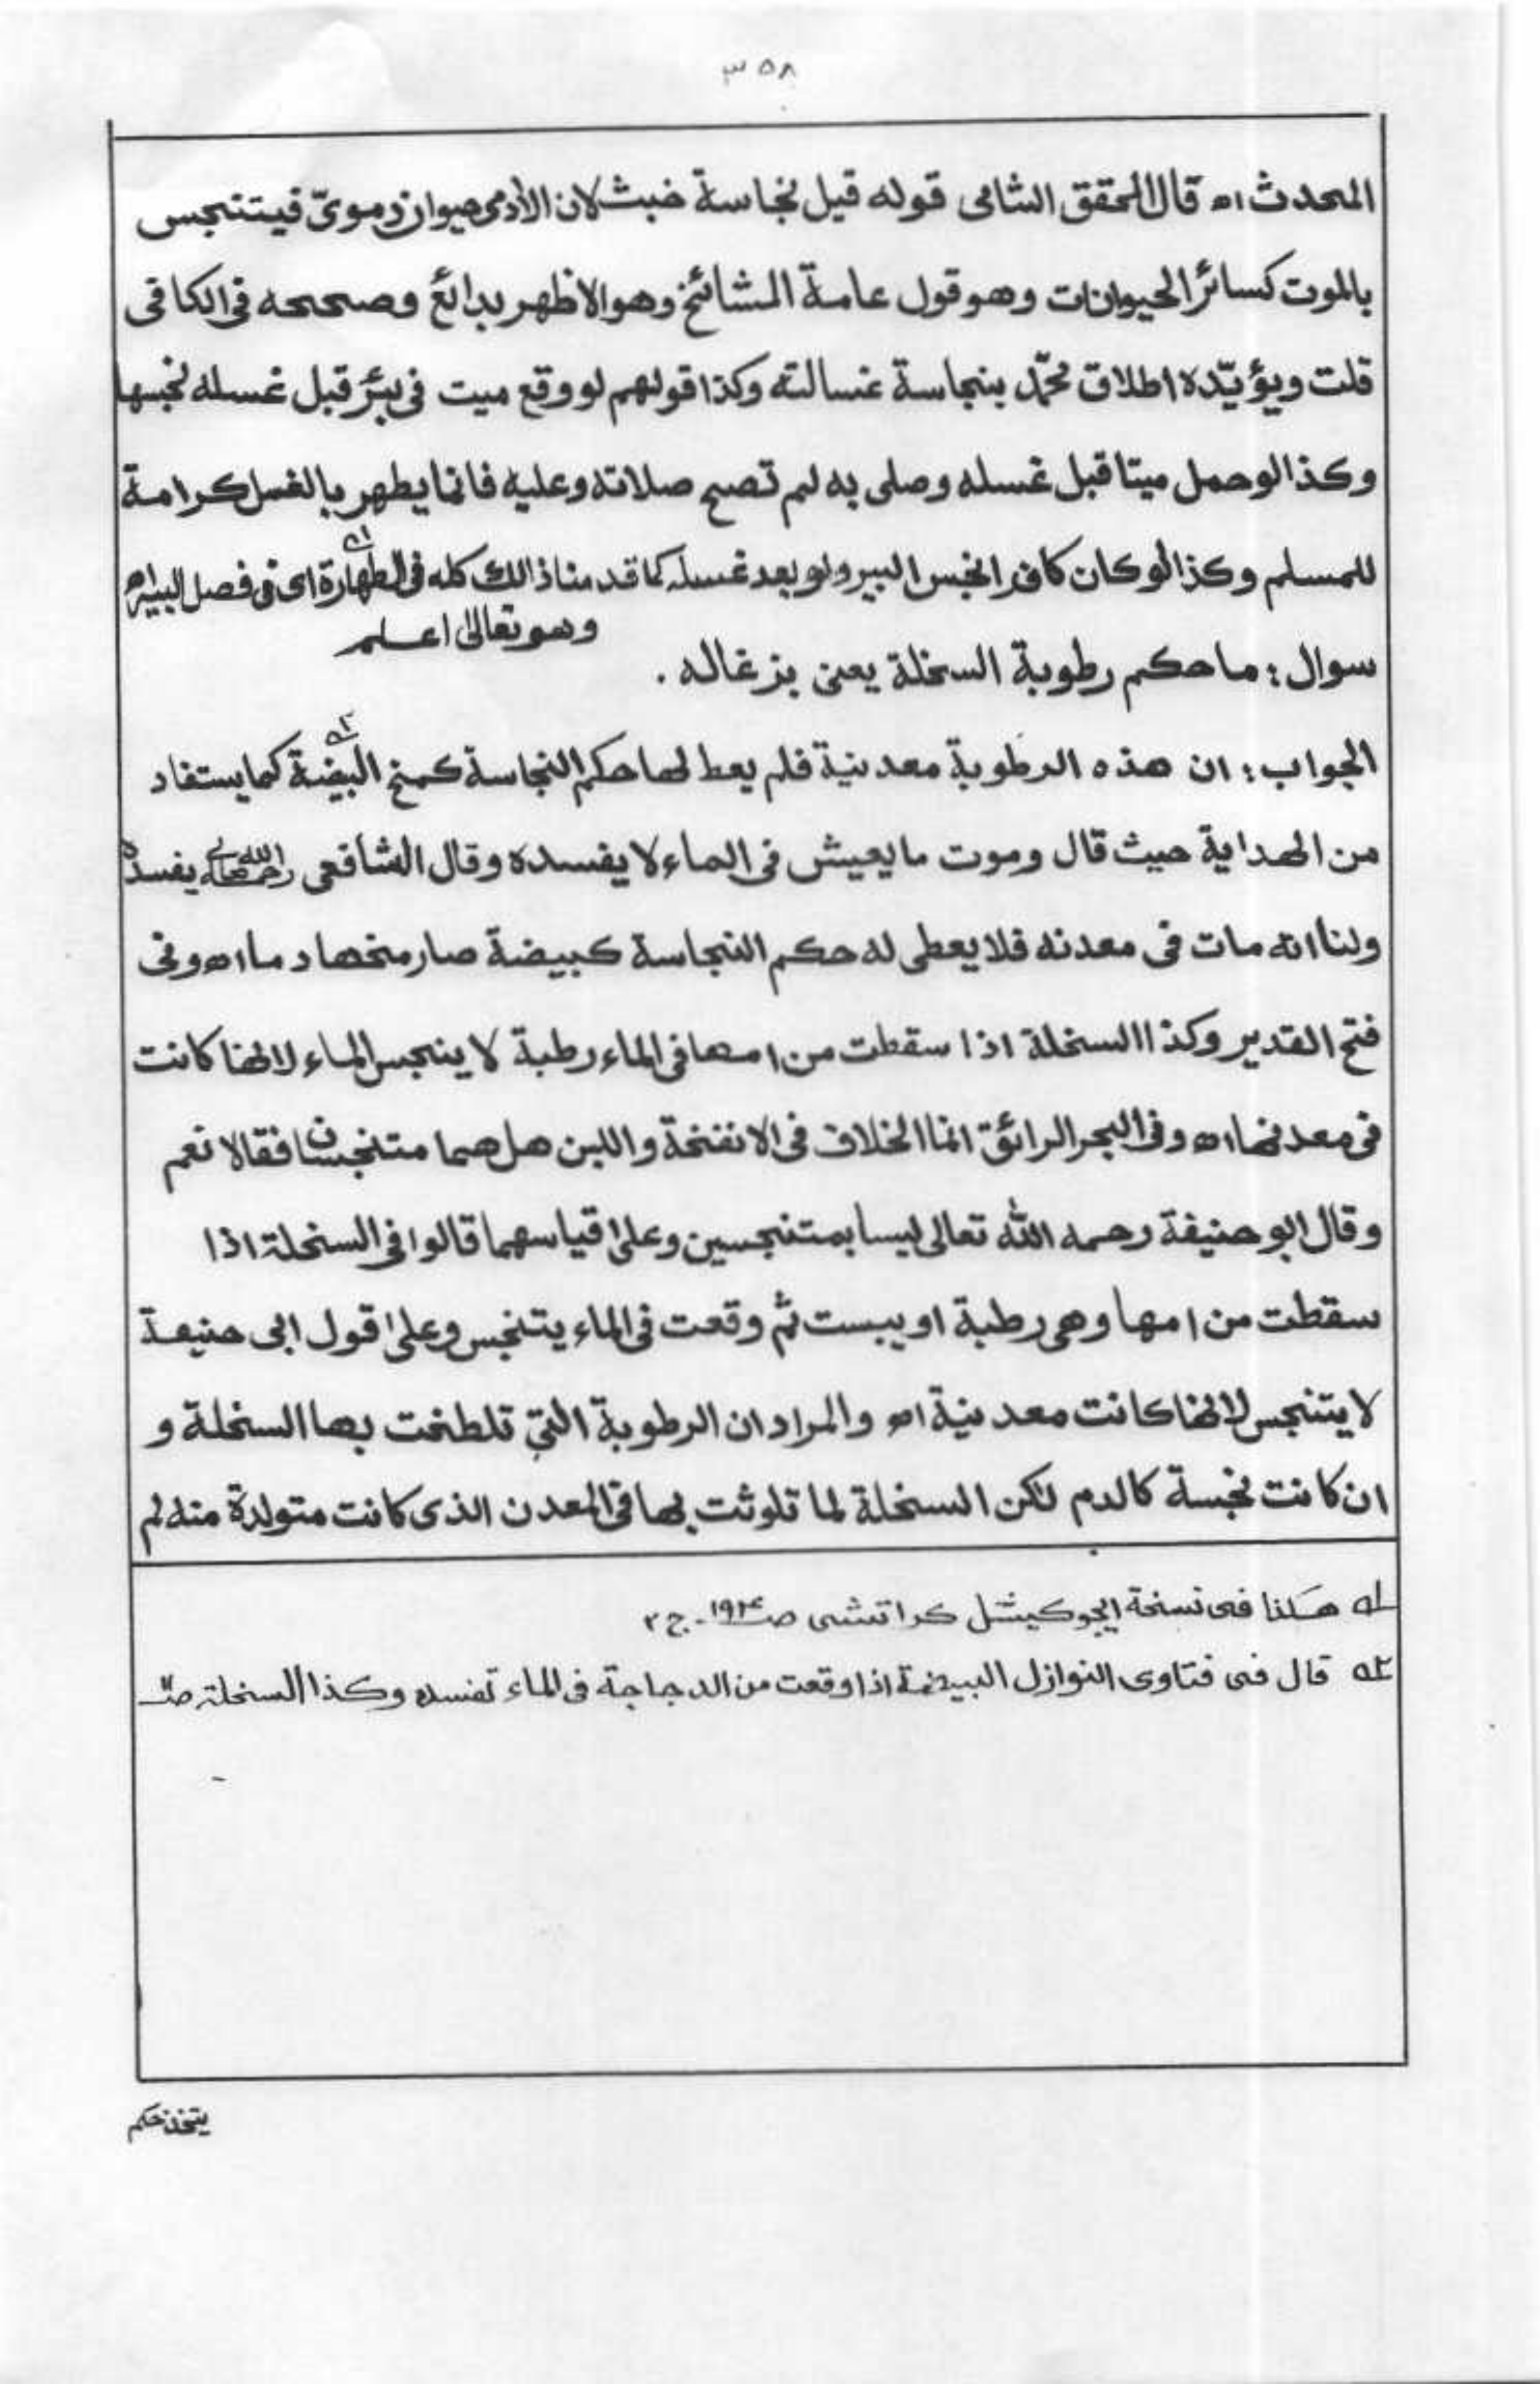 ٣٥٨
المحدث اه قال المحقق الشامى قوله قيل نجاسة خبث لان الأدمى حيوان دموىّ فيتنجس
بالموت كسائر الحيوانات وهو قول عامة المشائخ وهو الاظهر بدائع وصححه فى الكافى
قلت ويؤيّده اطلاق محمّد بنجاسة غسالته وكذا قولهم لو وقع ميت فى بئر قبل غسله نجسها
وكذا لوحمل ميتا قبل غسله وصلى به لم تصح صلاته وعليه فانما يطهر بالغسل كرامة
للمسلم وكذا لوكان كافرا نجس البير ولو بعد غسله كما قدمنا ذالك كله فى الطهارة ١ه اى فى فصل البير اه
وهو تعالىٰ اعلم
سوال : ما حكم رطوبة السخلة يعنى بزغاله .
الجواب : ان هذه الرطوبة معدنية فلم يعط لها حكم النجاسة كمخ البيضة ٢ه كما يستفاد
من الهداية حيث قال وموت ما يعيش فى الماء لا يفسده وقال الشافعى رحمه الله تعالى يفسده
ولنا انه مات فى معدنه فلا يعطى له حكم النجاسة كبيضة صار مخها دما اه وفى
فتح القدير وكذا السخلة اذا سقطت من امها فى الماء رطبة لا ينجس الماء لانها كانت
فى معدنها اه وفى البحر الرائق انما الخلاف فى الانفخة واللبن هل هما متنجسان فقالا نعم
وقال ابو حنيفة رحمه الله تعالى ليسا بمتنجسين وعلىٰ قياسهما قالوا فى السخلة اذا
سقطت من امها وهى رطبة او يبست ثم وقعت فى الماء يتنجس وعلىٰ قول ابى حنيفة
لا يتنجس لانها كانت معدنية اه والمراد ان الرطوبة التى تلطخت بها السخلة و
ان كانت نجسة كالدم لكن السخلة لما تلوثت بها فى المعدن الذى كانت متولدة منه لم
١ه هكذا فى نسخة ايجوكيشنل كراتشى صـ١٩٤ ـ ج ٢
٢ه قال فى فتاوى النوازل البيضة اذا وقعت من الدجاجة فى الماء تفسده وكذا السخلة
يتخذ حكم